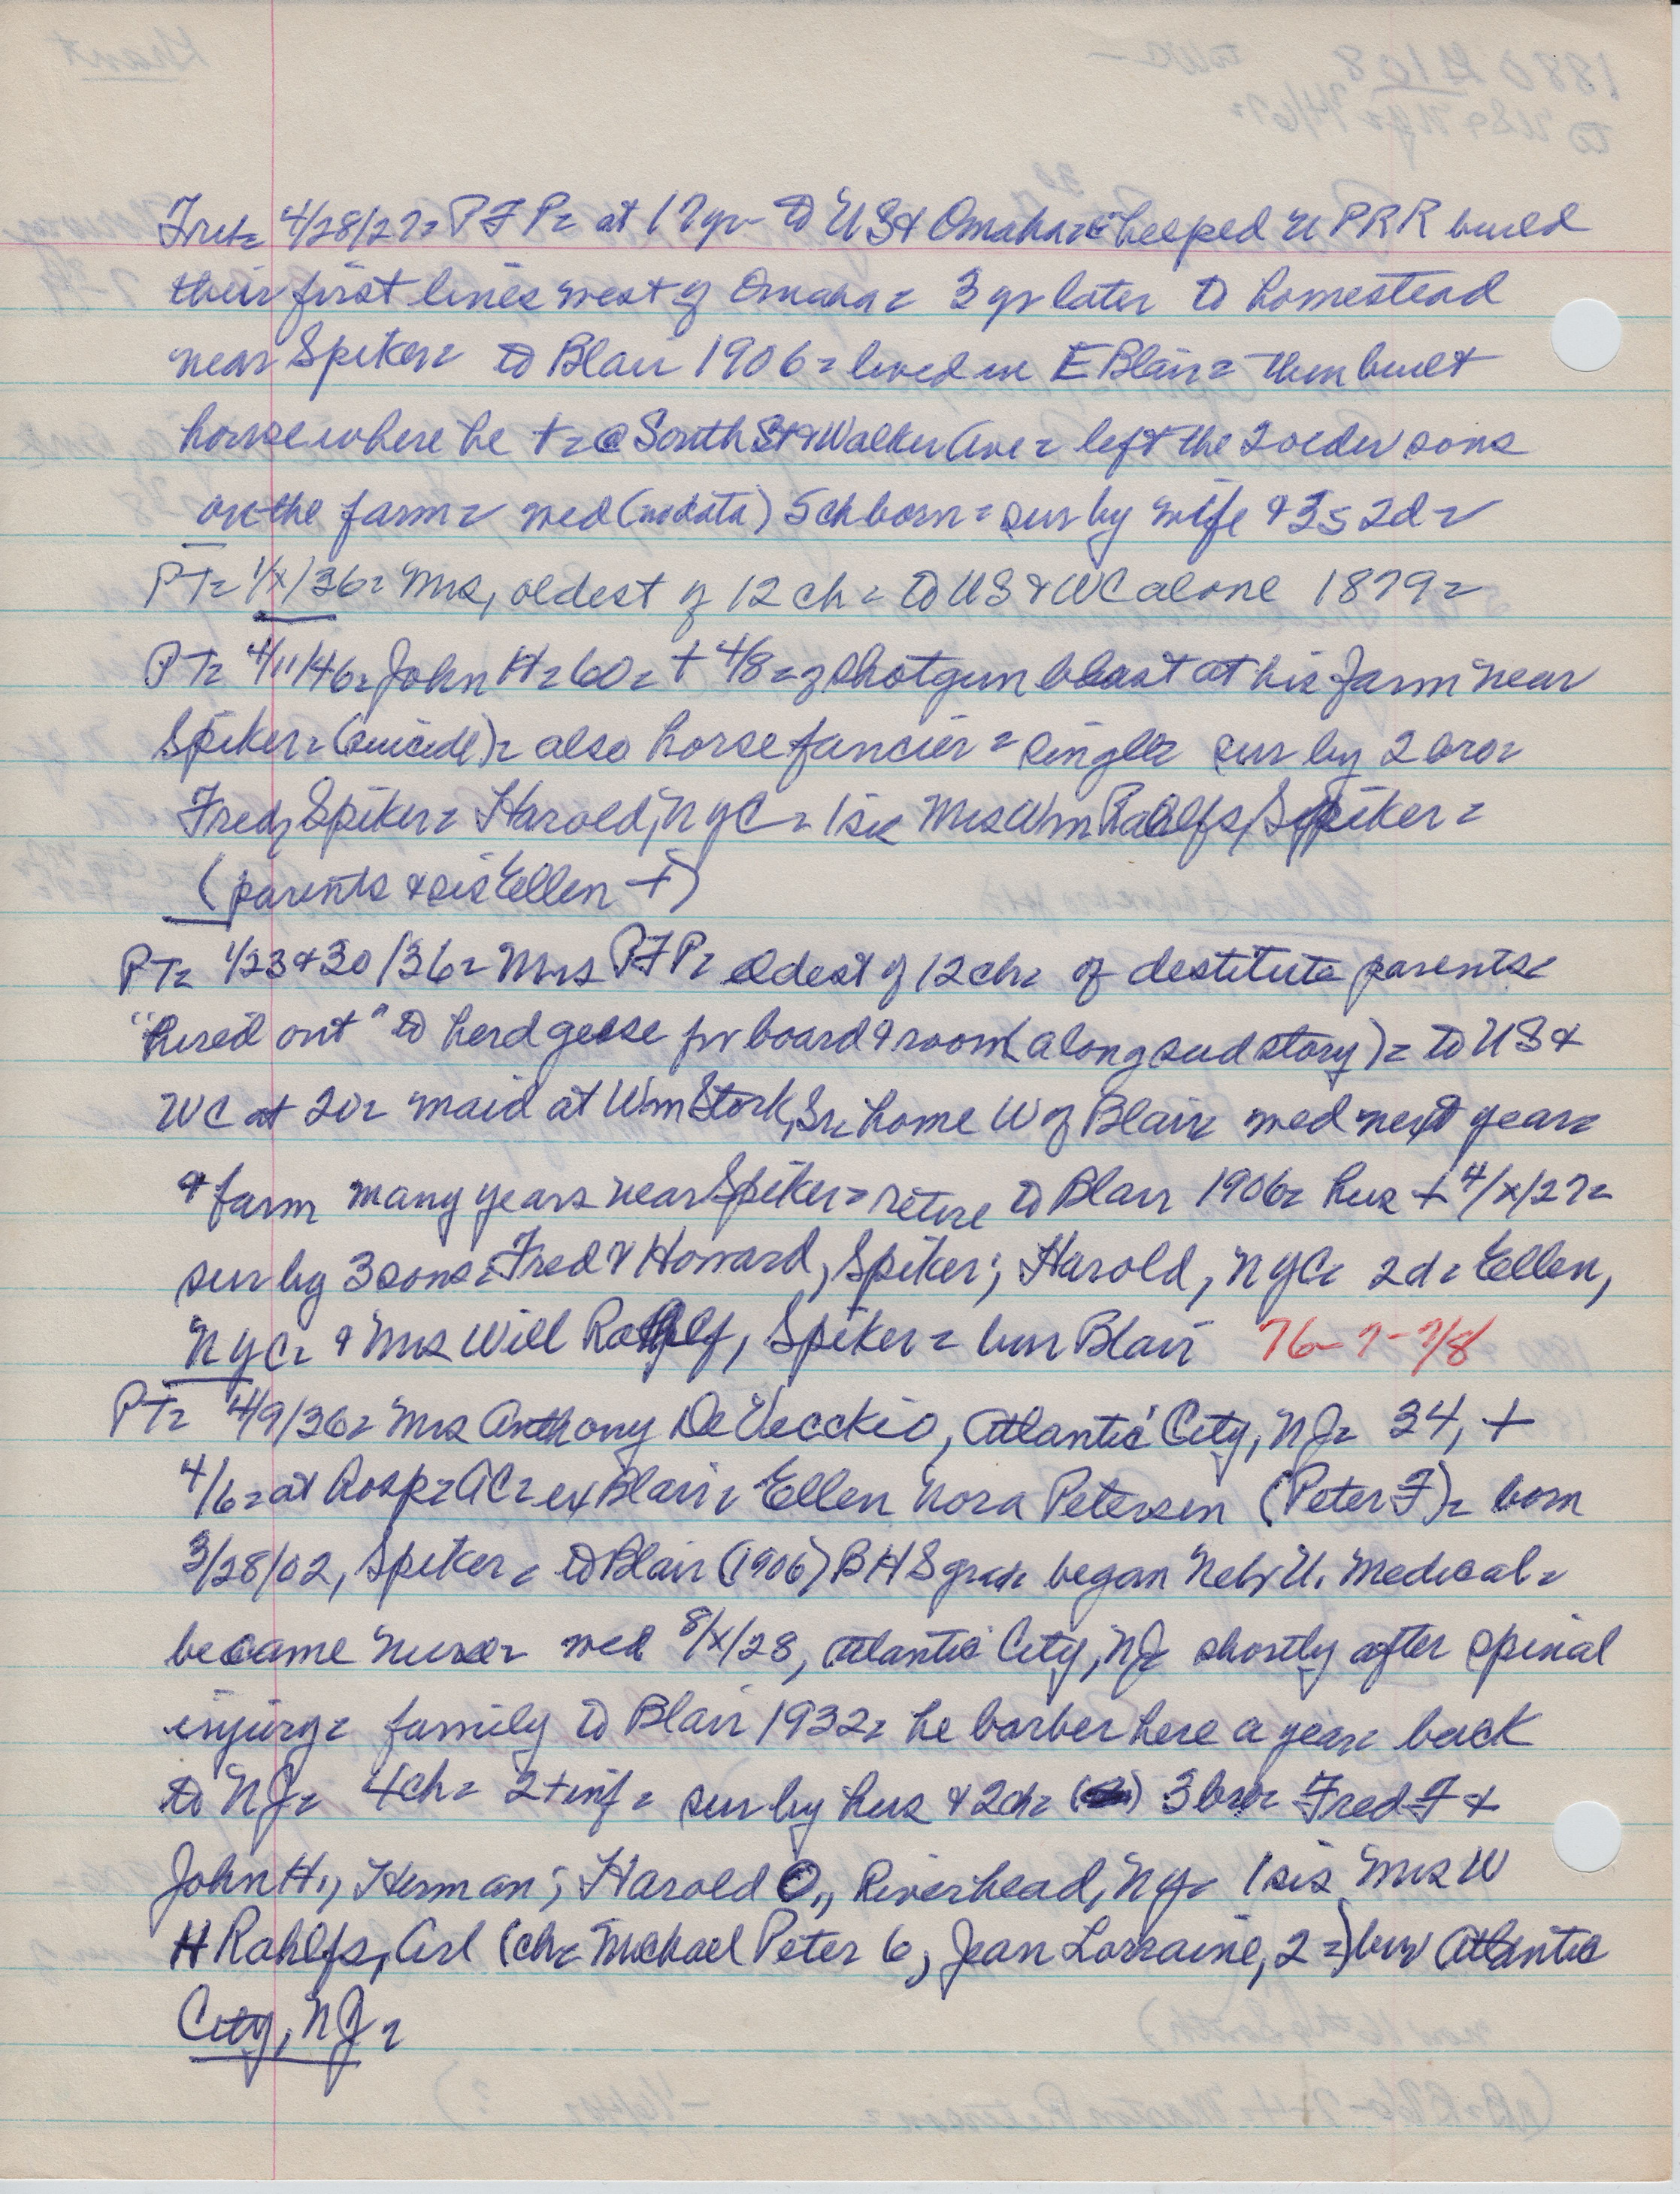 4/28/27= PFP= at 17 yr- to US & Omaha= helped UPRR build
their first lines west of Omaha= 3 yr later to homestead
near Spiker= to Blair 1906= lived in E Blair= then built
house where he += @ South St & Walker Ave= left the 2 older sons
on the farm= wed (no data) 5 ch born= sur by wife & 3s 2d=
PT= 1/x/36= Mrs, oldest of 12 ch= to US & WC alone 1879=
PT= 4/11/46= John H= 60= + 4/8= of shotgun blast at his farm near
Spiker= (suicide)= also horse fancier= single= sur by 2 bro=
Fred, Spiker= Harold, NYC= 1 sis Mrs Wm Rahlfs, Spiker=
(parents & sis Ellen +)
PT= 1/23 & 30/36= Mrs PFP= oldest of 12 ch= of destitute parents=
"hired out" to herd geese for board & room (a long sad story)= to US &
WC at 20= maid at Wm Stork, Sr= home W of Blair= wed next year=
& farm many years near Spiker= retire to Blair 1906= hus + 4/x/27=
sur by 3 sons= Fred & Howard, Spiker; Harold, NYC= 2d= Ellen,
NYC= & Mrs Will Rahlf, Spiker= bur Blair 76-7-7/8
PT= 4/9/36= Mrs Anthony DeVecckio, Atlantic City, NJ= 34, +
4/6= at hosp= AC= ex Blair= Ellen Nora Petersen (Peter F)= born
3/28/02, Spiker= to Blair (1906) BHS grad= began Neb U. Medical=
became nurse= wed 8/x/28, Atlantic City, NJ= shortly after spinal
injury= family to Blair 1932= he barber here a year= back
to NJ= 4ch= 2 + inf= sur by hus & 2ch= 3 bro= Fred F &
John H., Herman; Harold O., Riverhead, NY= 1 sis Mrs W
H Rahlfs, Arl (ch= Michael Peter 6, Jean Lorraine, 2=) bur Atlantic
City, NJ=